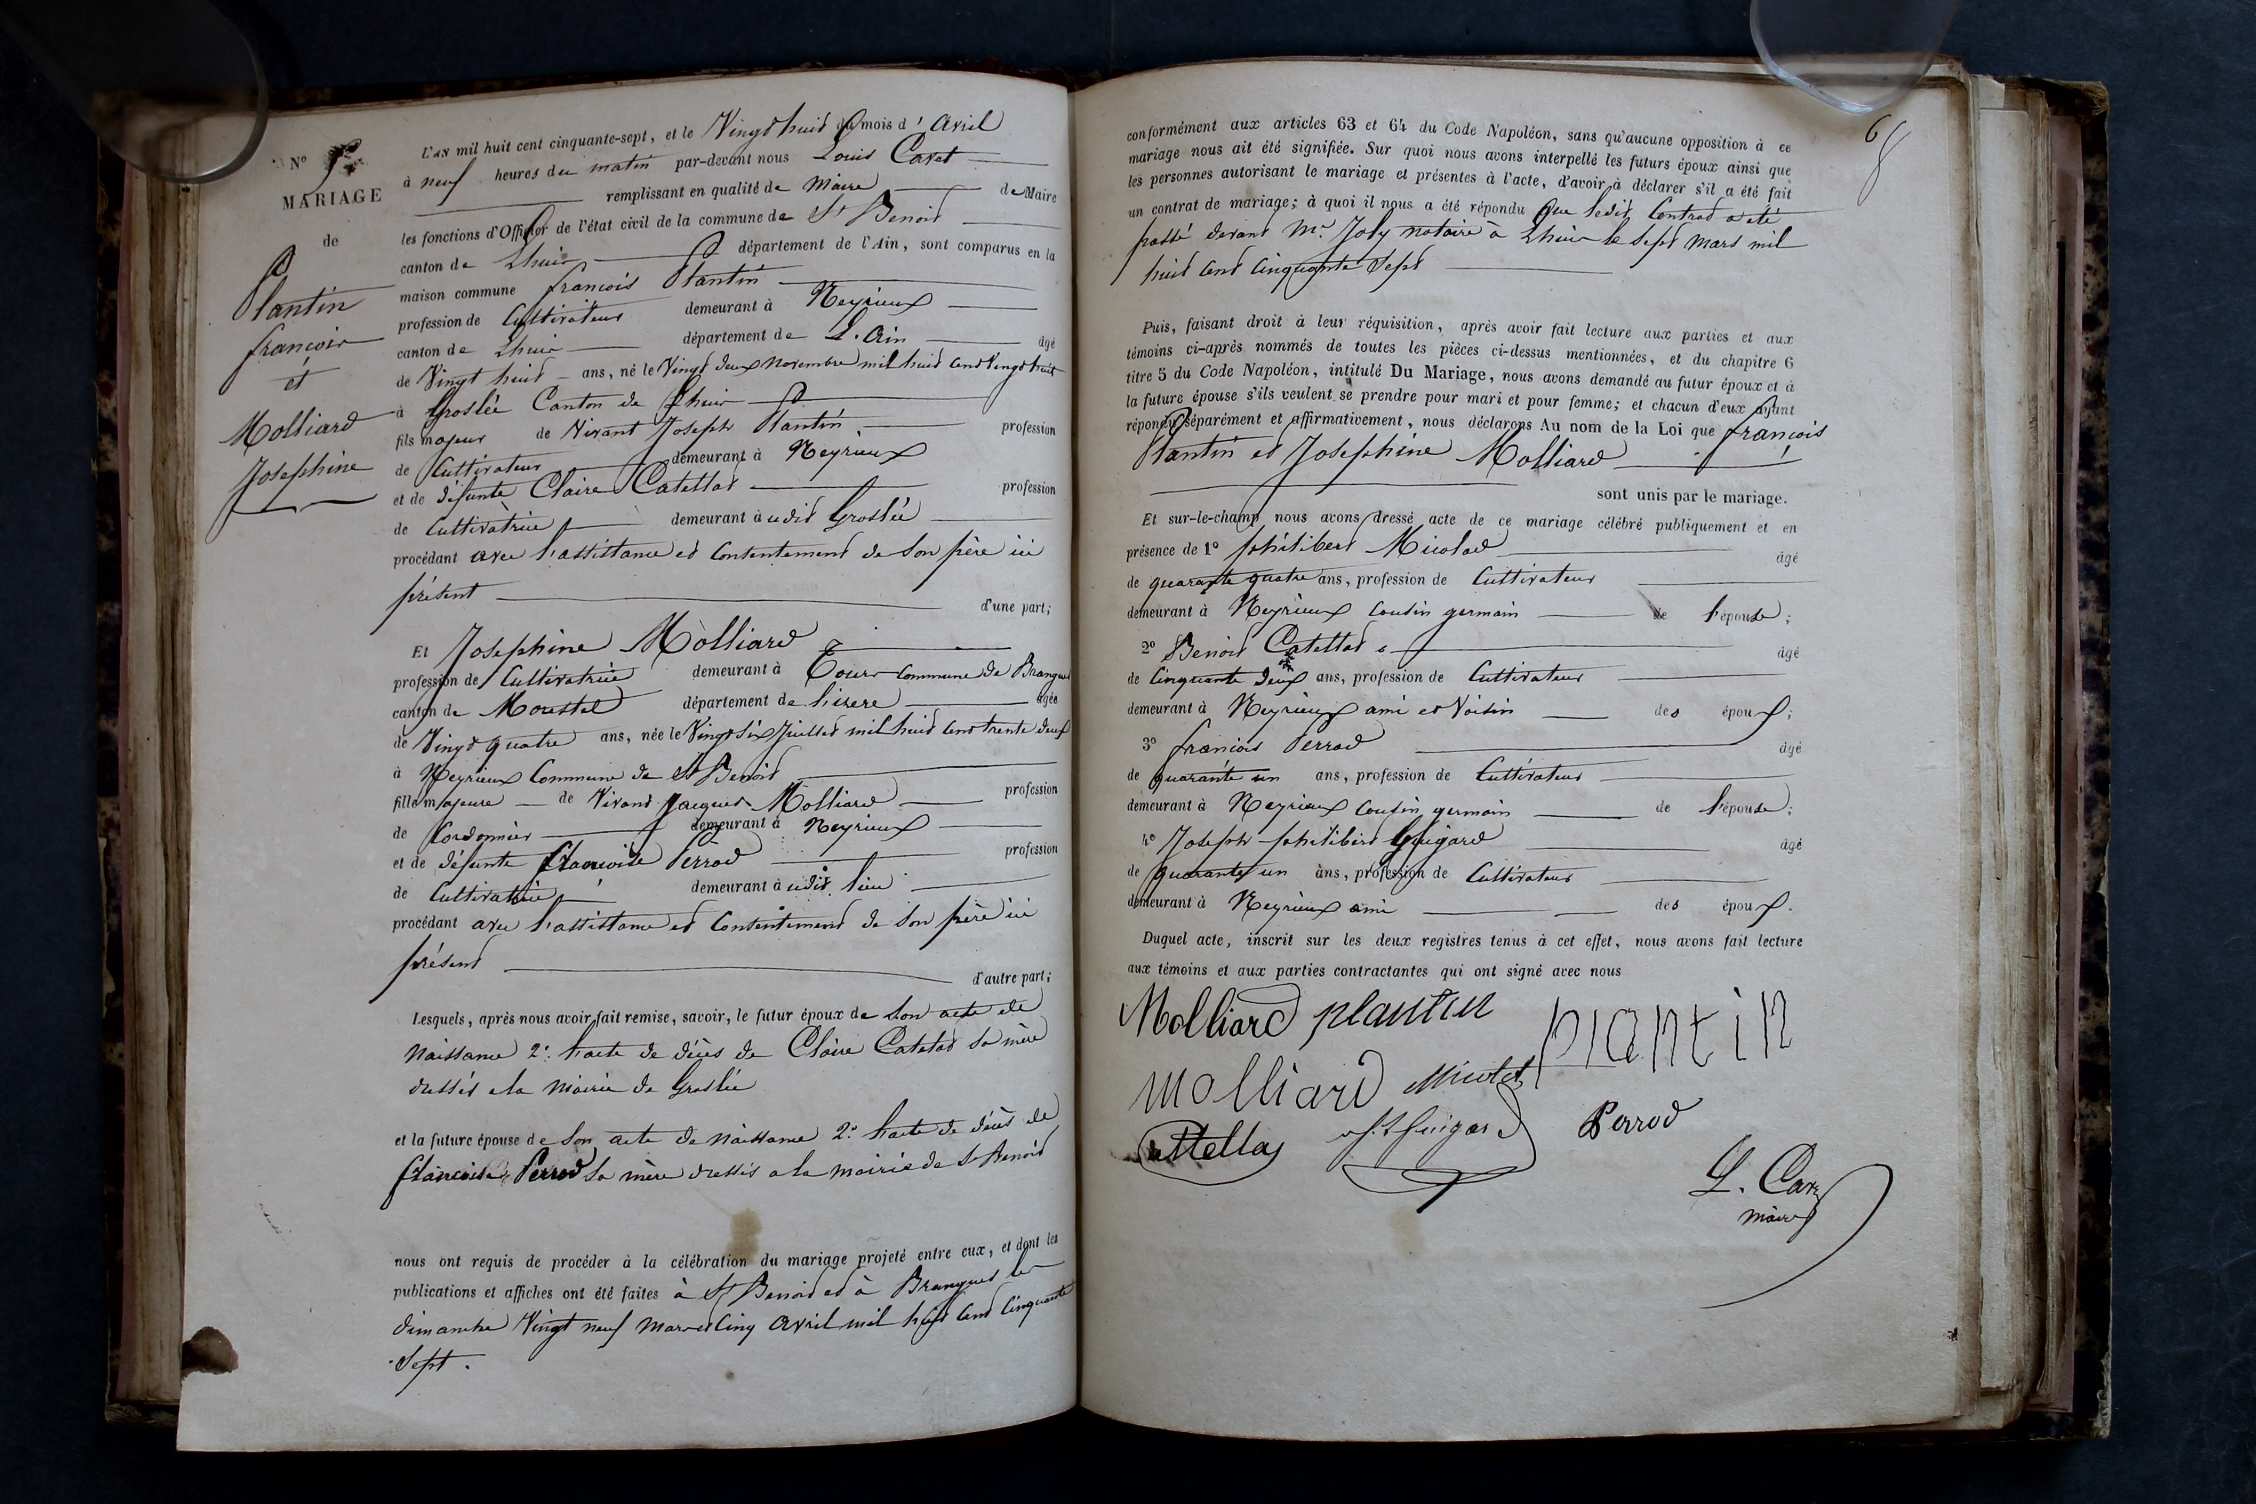 N°
MARIAGE
de
Plantin
francois
et
Molliard
Josephine
L'an mil huit cent cinquante-sept, et le Vingt huit du mois d'avril
à neuf heures du matin par-devant nous Louis Caret
remplissant en qualité de maire de Maire
les fonctions d'Officier de l'état civil de la commune de St Benoit
canton de Lhuis département de l'Ain, sont comparus en la
maison commune francois Plantin
profession de Cultivateur demeurant à Neyrieux
canton de Lhuis département de L'Ain âgé
de Vingt huit ans, né le Vingt deux novembre mil huit cent Vingt huit
à Groslée Canton de Lhuis
fils majeur de Vivant Joseph Plantin profession
de Cultivateur demeurant à Neyrieux
et de défunte Claire Catettat profession
de Cultivatrice demeurant à udit Groslée
procédant avec l'assistance et Consentement de Son père ici
présent d'une part;
Et Josephine Molliard
profession de Cultivatrice demeurant à Cours Commune de Brangues
canton de Morestel département de lisere âgée
de Vingt quatre ans, née le Vingt six Juillet mil huit cent trente deux
à Neyrieux Commune de St Benoit
fille majeure de Vivant Jacques Molliard profession
de Cordonnier demeurant à Neyrieux
et de défunte francoise Perrod profession
de Cultivatrice demeurant à udit lieu
procédant avec l'assistance et Consentement de Son père ici
présent d'autre part;
Lesquels, après nous avoir fait remise, savoir, le futur époux de Son acte de
Naissance 2°. lacte de décès de Claire Catetat Sa mère
dressés a la Mairie de Groslée
et la future épouse de Son acte de Naissance 2°. lacte de décès de
francoise Perrod Sa mère dressés a la mairie de St Benoit
nous ont requis de procéder à la célébration du mariage projeté entre eux, et dont les
publications et affiches ont été faites à St Benoit et à Brangues les
dimanche Vingt neuf Mars et Cinq Avril mil huit Cent Cinquante
Sept.
6
conformément aux articles 63 et 64 du Code Napoléon, sans qu'aucune opposition à ce
mariage nous ait été signifiée. Sur quoi nous avons interpellé les futurs époux ainsi que
les personnes autorisant le mariage et présentes à l'acte, d'avoir à déclarer s'il a été fait
un contrat de mariage; à quoi il nous a été répondu Que ledit Contrat a été
passé devant Me. Joly notaire à Lhuis le Sept Mars mil
huit Cent Cinquante Sept
Puis, faisant droit à leur réquisition, après avoir fait lecture aux parties et aux
témoins ci-après nommés de toutes les pièces ci-dessus mentionnées, et du chapitre 6
titre 5 du Code Napoléon, intitulé Du Mariage, nous avons demandé au futur époux et à
la future épouse s'ils veulent se prendre pour mari et pour femme; et chacun d'eux ayant
répondu séparément et affirmativement, nous déclarons Au nom de la Loi que francois
Plantin et Josephine Molliard
sont unis par le mariage.
Et sur-le-champ nous avons dressé acte de ce mariage célébré publiquement et en
présence de 1° philibert Micolod âgé
de quarante quatre ans, profession de Cultivateur
demeurant à Neyrieux Cousin germain de l'épouse;
2° Benoit Catettat âgé
de Cinquante Deux ans, profession de Cultivateur
demeurant à Neyrieux ami et Voisin des époux;
3° francois Perrod âgé
de quarante un ans, profession de Cultivateur
demeurant à Neyrieux Cousin germain de l'épouse;
4° Joseph philibert Guigard âgé
de quarante un ans, profession de Cultivateur
demeurant à Neyrieux ami des époux.
Duquel acte, inscrit sur les deux registres tenus à cet effet, nous avons fait lecture
aux témoins et aux parties contractantes qui ont signé avec nous
Molliard plantin plantin
molliard
Perrod
L. Caret
maire